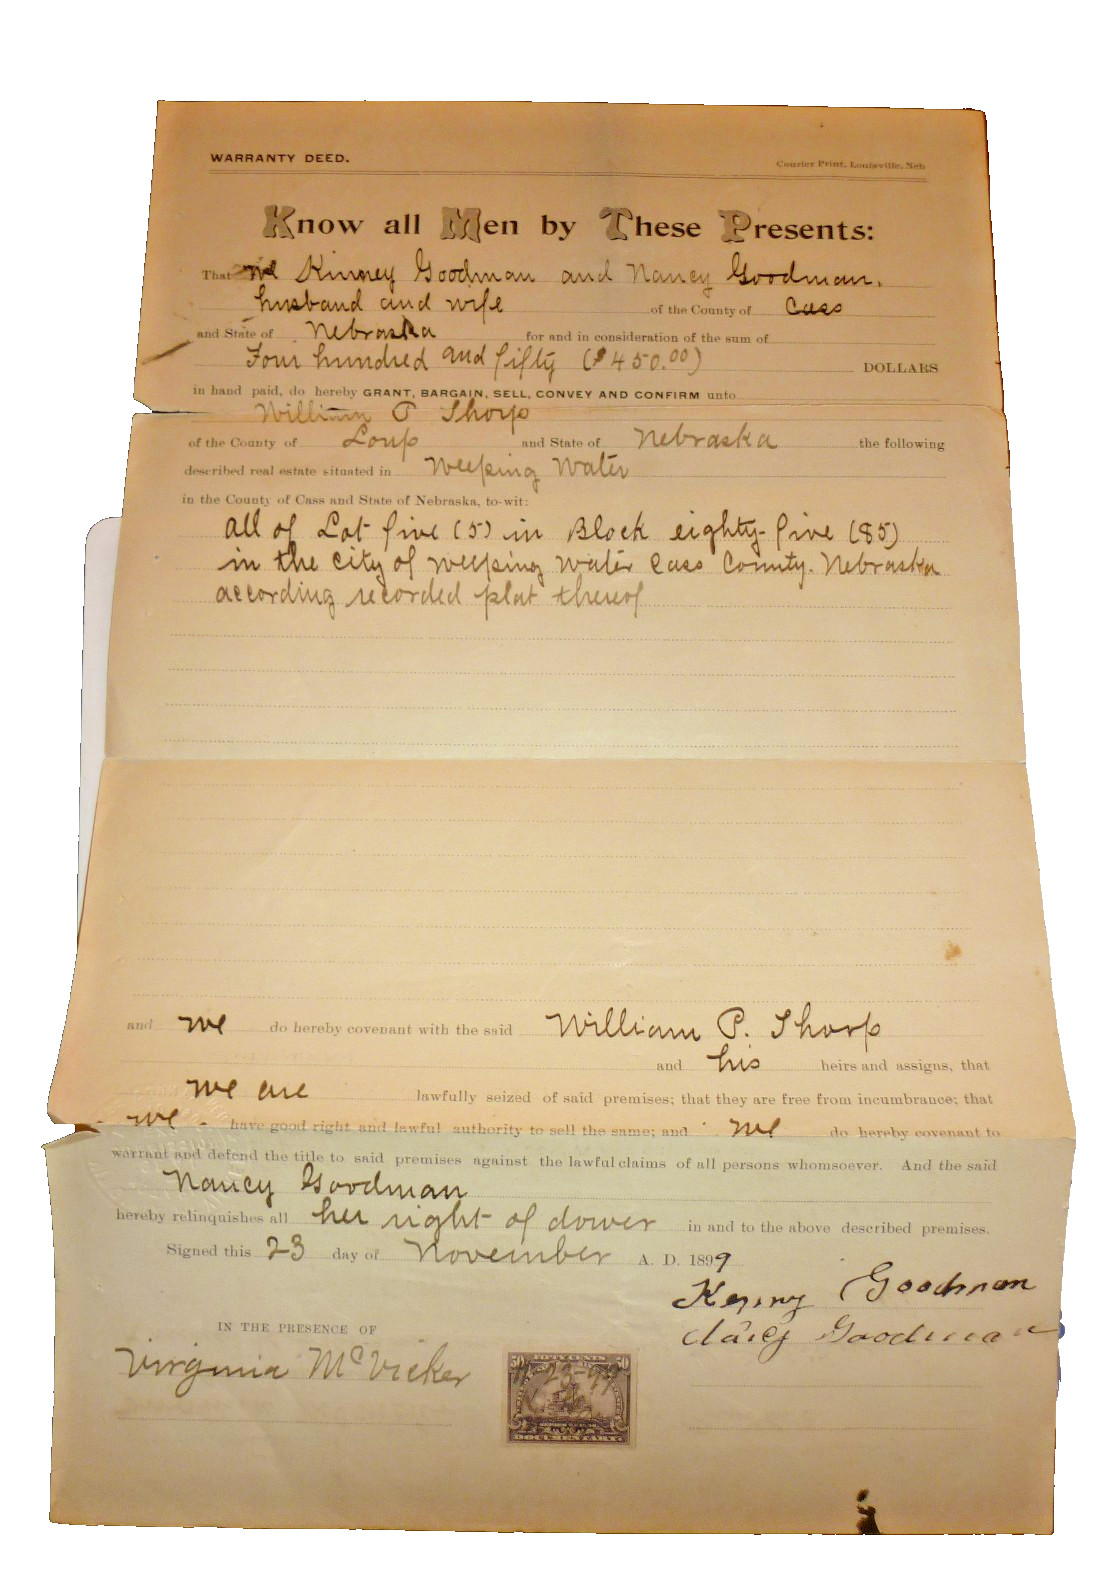 WARRANTY DEED.
Courier Print, Louisville, Neb
Know all Men by These Presents:
That we Kinney Goodman and Nancy Goodman,
husband and wife of the County of Cass
and State of Nebraska for and in consideration of the sum of
Four hundred and fifty ($450.00) DOLLARS
in hand paid, do hereby GRANT, BARGAIN, SELL, CONVEY AND CONFIRM unto
William P Thorp
of the County of Loup and State of Nebraska the following
described real estate situated in Weeping Water
in the County of Cass and State of Nebraska, to-wit:
all of Lot five (5) in Block eighty-five (85)
in the City of Weeping Water Cass County. Nebraska
according recorded plat thereof
and we do hereby covenant with the said William P. Thorp
and his heirs and assigns, that
we are lawfully seized of said premises; that they are free from incumbrance; that
we have good right and lawful authority to sell the same; and we do hereby covenant to
warrant and defend the title to said premises against the lawful claims of all persons whomsoever. And the said
Nancy Goodman
hereby relinquishes all her right of dower in and to the above described premises.
Signed this 23 day of November A. D. 1899
Goodman
Goodman
IN THE PRESENCE OF
Virginia McVicker
50 FIFTY CENTS 50
11-23-99
DOCUMENTARY